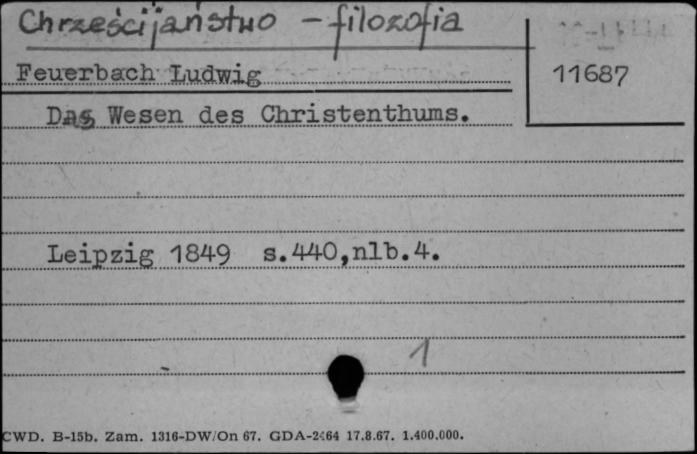 Chrześcijaństwo - filozofia
Feuerbach Ludwig
11687
Das Wesen des Christenthums.
Leipzig 1849 s.440,nlb.4.
1
CWD. B-15b. Zam. 1316-DW/On 67. GDA-2464 17.8.67. 1.400.000.